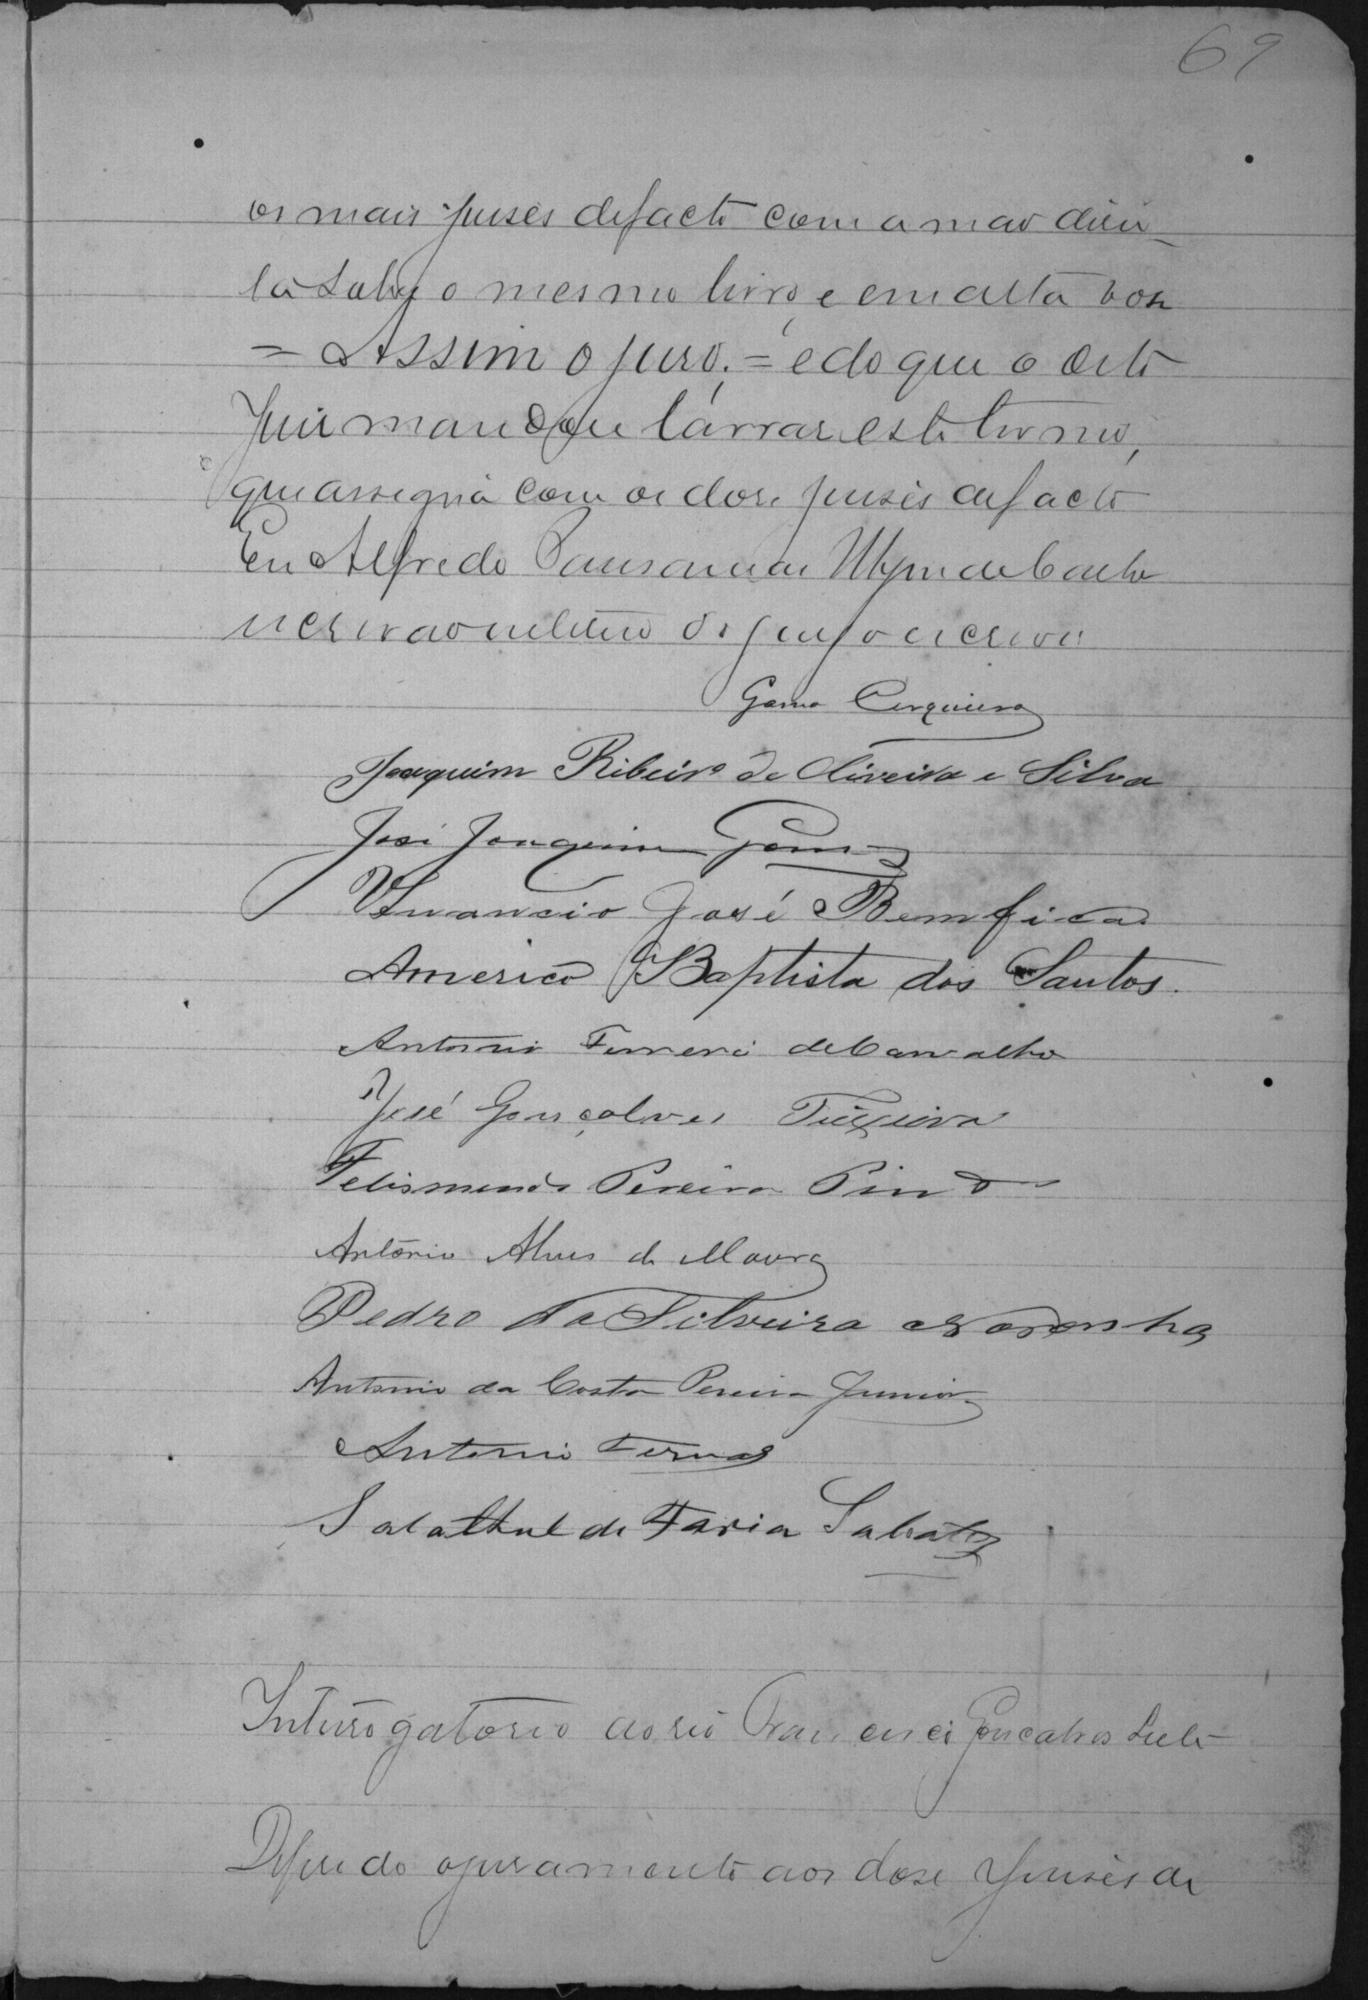 69
os mais juises de facto com a mao direi-
ta sobre o mesmo livro, e em alta vos
= Assim o juro. = e do que o dito
Juis mandou lavrar este termo,
que assigna com os dose juises de facto
Eu Alfredo de Castro
escrivão do jury o escrevi
Gama Cerqueira
Joaquim Ribeiro de Oliveira e Silva
José Joaquim Gomes
Venancio José Bemfica
Americo Baptista dos Santos.
Antonio Ferreira de Carvalho
José Gonçalves Teixeira
Felismundo Pereira Pinto
Antonio Alves de Moura
Pedro da Silveira Noronha
Antonio da Costa Pereira Junior
Antonio
Salathiel de Faria Lobato
Interrogatorio ao réo Francisco Gonçalves Leite
Deferido o juramento aos dose Juises de